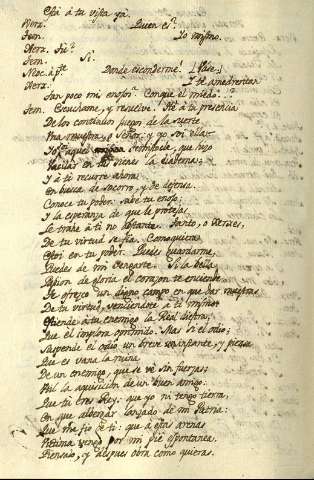 Está á tu vista ya.
Xerx. Quien es?
Tem. Yo mismo.
Xerx. Tú?
Tem. Sí.
Neoc. ap.te Donde esconderme! [Vase.]
Xerx. Y te amedrentan
tan poco mi enojo? Conque el miedo...?
Tem. Escuchame, y resuelve. Ve á tu presencia
De los contados juegos de la suerte
Una muestra, ó Señor: yo soy
aquel Temistocle, que hizo
Vacilar en tus sienes la diadema;
Y á ti recurre ahora
En busca de socorro, y de defensa.
Conoce tu poder: sabe tu enojo;
Y la esperanza de que le protejas,
Le trahe á ti no obstante. Tanto, ó Xerxes,
De tu virtud se fia. Comoquiera,
Estoi en tu poder. Puedes guardarme,
Puedes de mi vengarte. Si la bella
Pasion de gloria el corazon te enciende,
Te ofrezco un digno campo en que dar muestras
De tu virtud, venciendote á ti mismo.
Estiende á tu enemigo la Real diestra;
Que él implora oprimido. Mas si el odio;
Suspende el odio un breve instante, y piensa
Que es vana la ruina
De un enemigo, que se ve sin fuerzas;
Util la aquisicion de un buen amigo.
Que tú eres Rey: que yo ni tengo tierra,
En que albergar lanzado de mi Patria:
Que me fio de ti: que á estas arenas
Victima vengo por mi pie espontanea.
Piensalo, y despues obra como quieras.